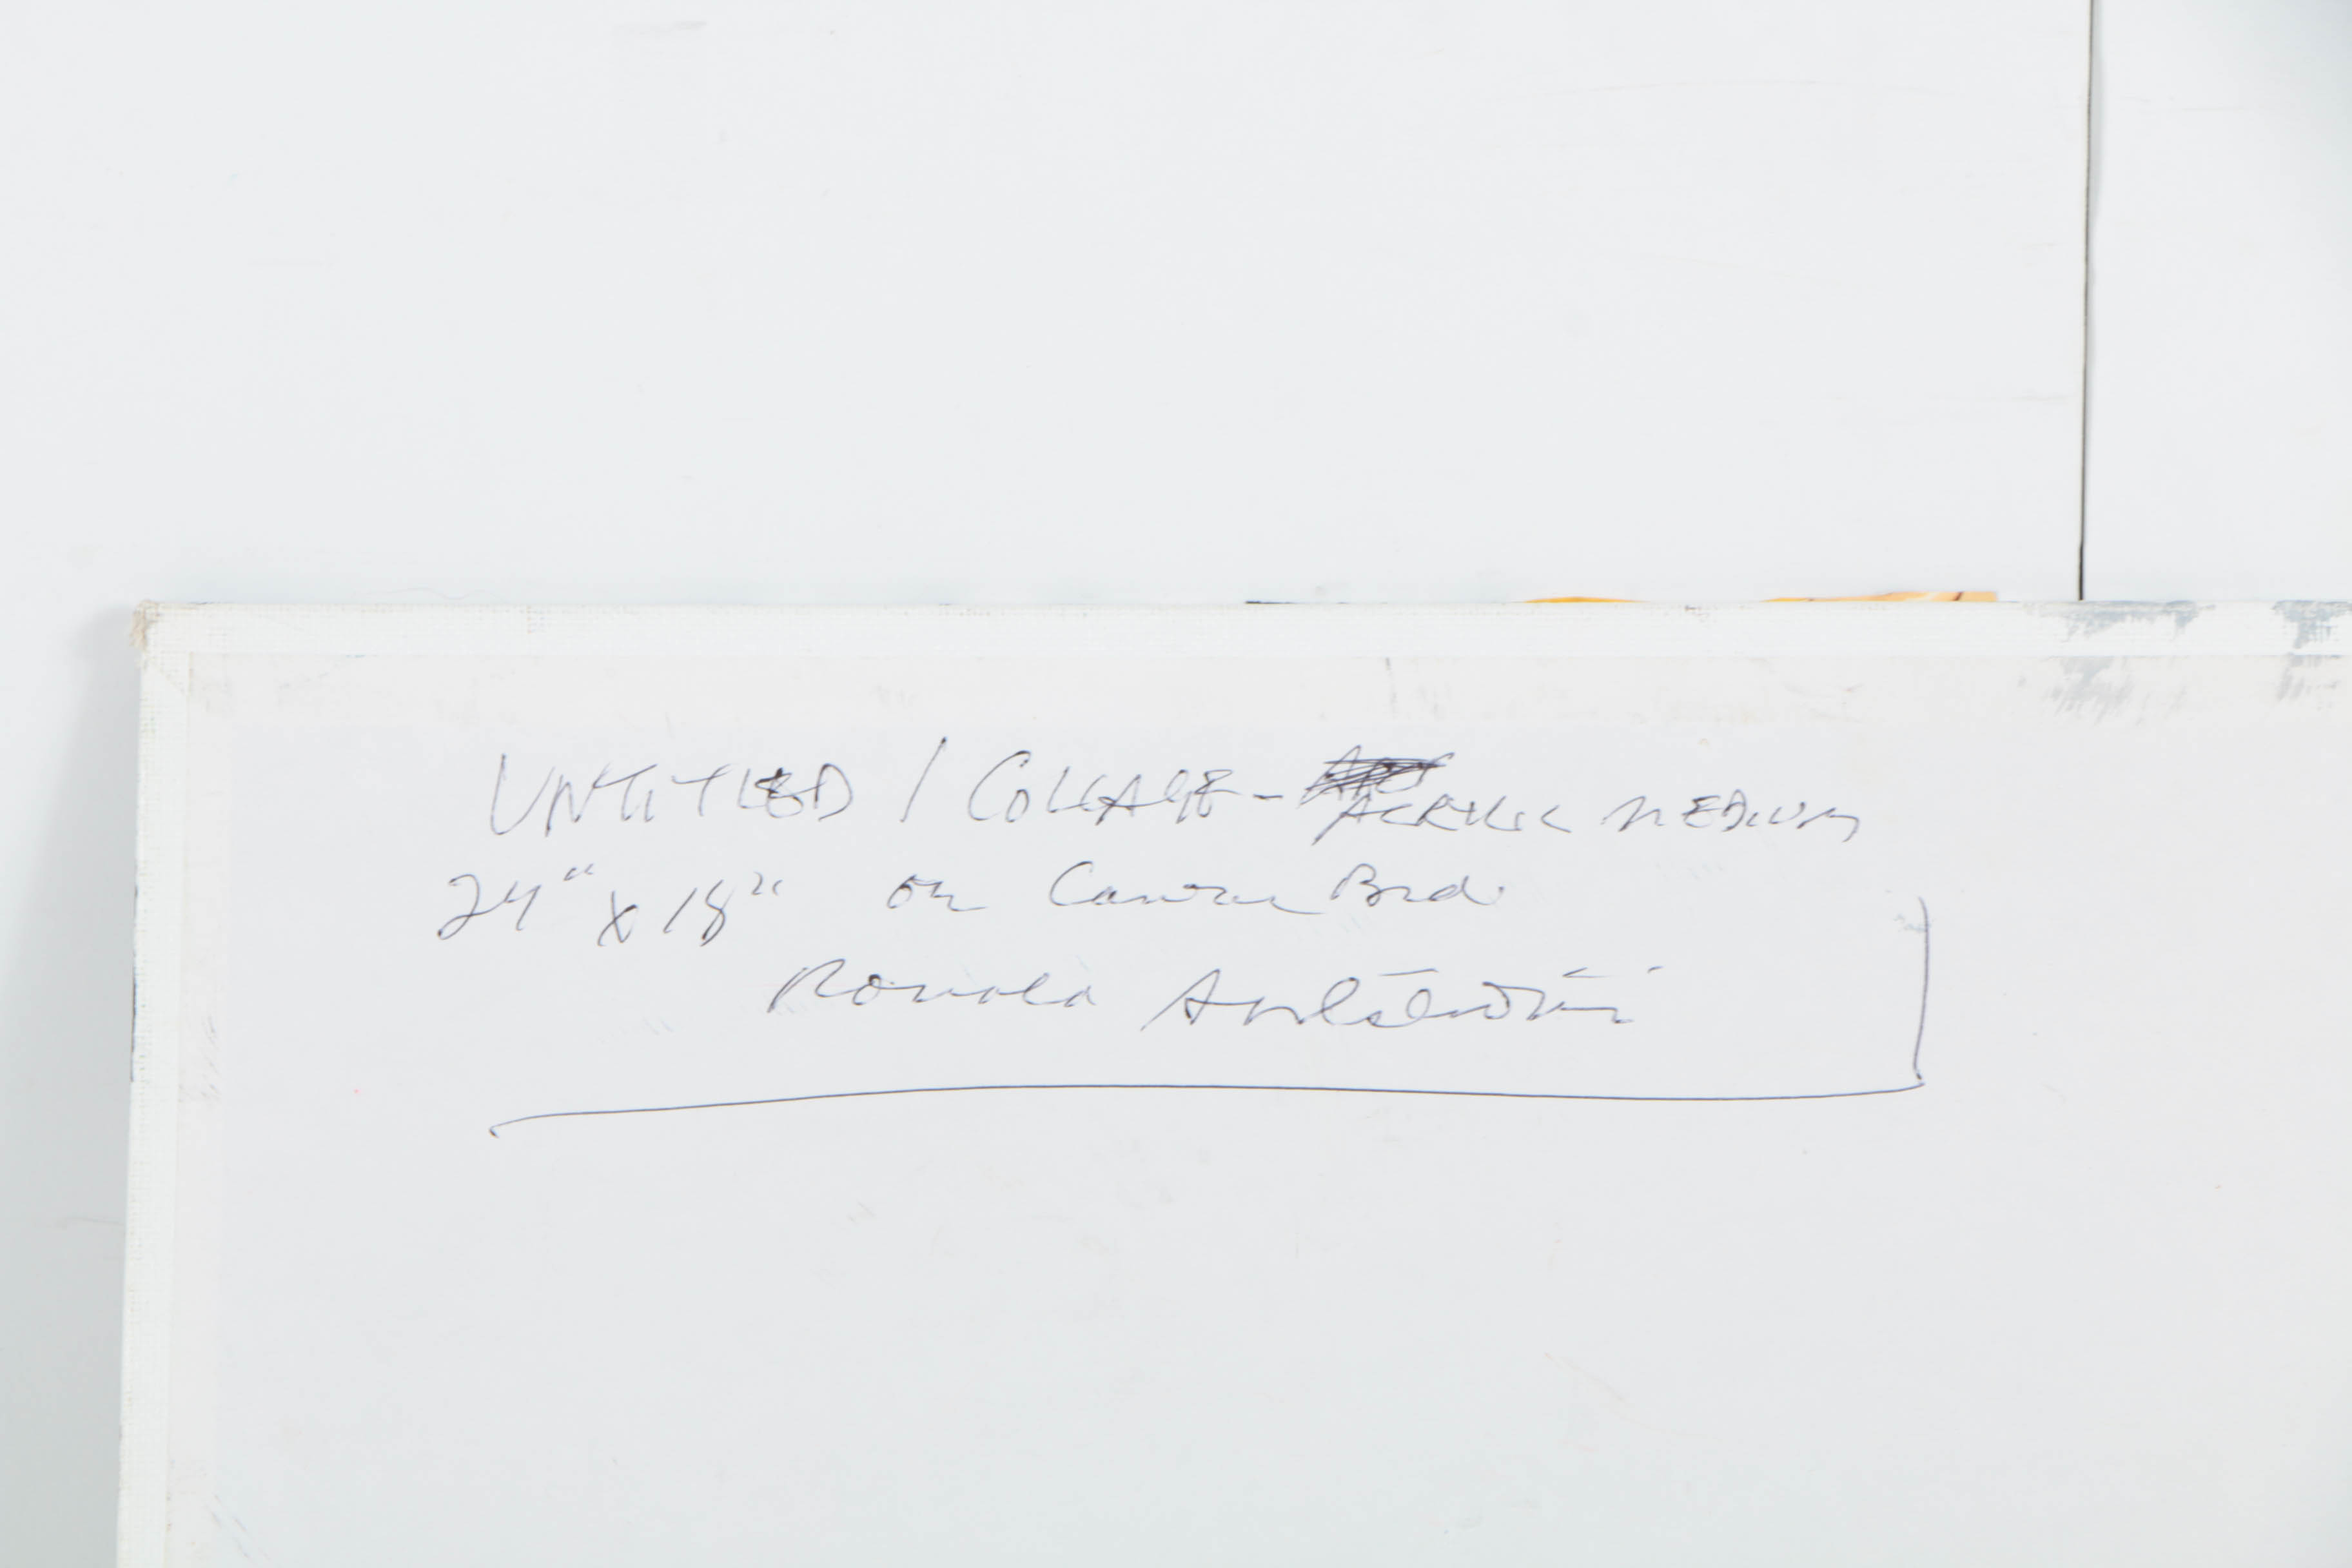 UNTITLED / COLLAGE - ACRYLIC MEDIUM
24" x 18" on Canvas Brd.
Ronald